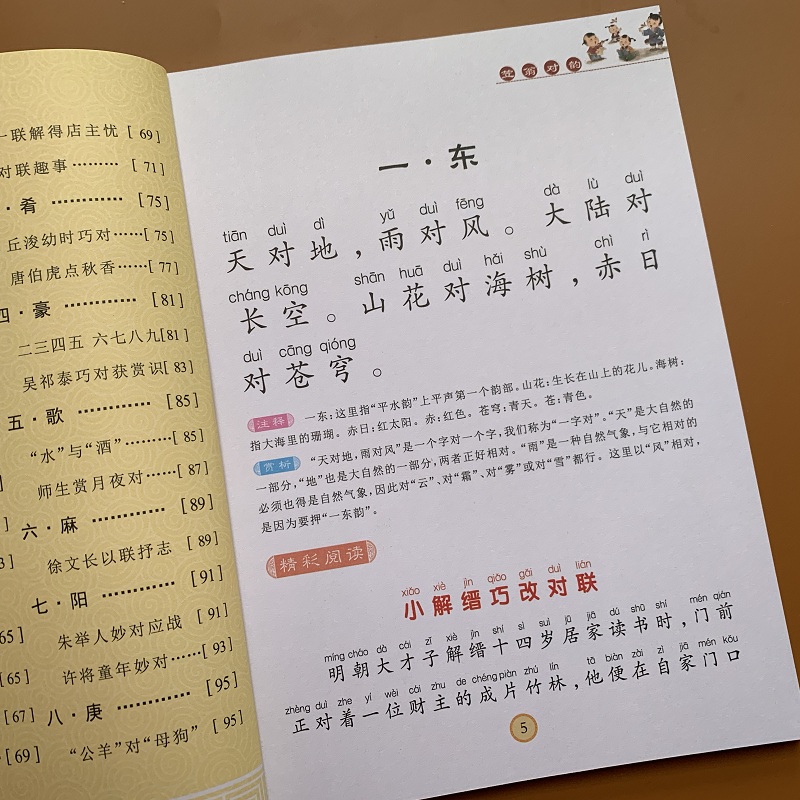 一联解得店主忧 [ 69]
对联趣事……… [ 71]
·肴 ………… [75]
丘浚幼时巧对……[75]
唐伯虎点秋香……[ 77]
四·豪 ………… [81]
二三四五 六七八九[81]
吴祁泰巧对获赏识[ 83]
五·歌 ………… [85]
“水”与“酒”………[ 85]
师生赏月夜对……[ 87]
六·麻 ………… [89]
徐文长以联抒志 [ 89]
七·阳 ………… [91]
朱举人妙对应战 [ 91]
65]
许将童年妙对……[ 93]
[65]
八·庚 ………… [95]
[67]
“公羊”对“母狗” [ 95]
[69]
笠翁对韵
一·东
tiān duì dì yǔ duì fēng dà lù duì
天对地，雨对风。大陆对
cháng kōng shān huā duì hǎi shù chì rì
长空。山花对海树，赤日
duì cāng qióng
对苍穹。
注释 一东：这里指“平水韵”上平声第一个韵部。山花：生长在山上的花儿。海树：
指大海里的珊瑚。赤日：红太阳。赤：红色。苍穹：青天。苍：青色。
赏析 “天对地，雨对风”是一个字对一个字，我们称为“一字对”。“天”是大自然的
一部分，“地”也是大自然的一部分，两者正好相对。“雨”是一种自然气象，与它相对的
必须也得是自然气象，因此对“云”、对“霜”、对“雾”或对“雪”都行。这里以“风”相对，
是因为要押“一东韵”。
精彩阅读
xiǎo xiè jìn qiǎo gǎi duì lián
小解缙巧改对联
míng cháo dà cái zǐ xiè jìn shí sì suì jū jiā dú shū shí mén qián
明朝大才子解缙十四岁居家读书时，门前
zhèng duì zhe yí wèi cái zhu de chéng piàn zhú lín tā biàn zài zì jiā mén kǒu
正对着一位财主的成片竹林，他便在自家门口
5